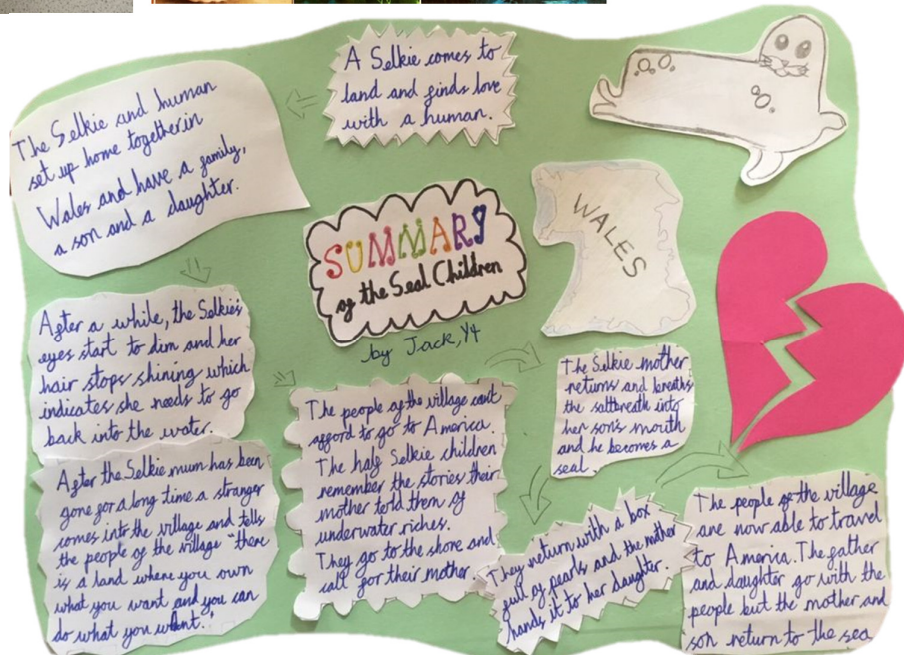 A Selkie comes to
land and finds love
with a human.
The Selkie and human
set up home together in
Wales and have a family,
a son and a daughter.
SUMMARY
of the Seal Children
by Jack, Y4
WALES
After a while, the Selkie's
eyes start to dim and her
hair stops shining which
indicates she needs to go
back into the water.
After the Selkie mum has been
gone for a long time a stranger
comes into the village and tells
the people of the village "there
is a land where you own
what you want and you can
do what you want."
The people of the village can't
afford to go to America.
The half Selkie children
remember the stories their
mother told them of
underwater riches.
They go to the shore and
call for their mother.
The Selkie mother
returns and breaths
the saltbreath into
her sons mouth
and he becomes a
seal.
They return with a box
full of pearls and the mother
hands it to her daughter.
The people of the village
are now able to travel
to America. The father
and daughter go with the
people but the mother and
son return to the sea